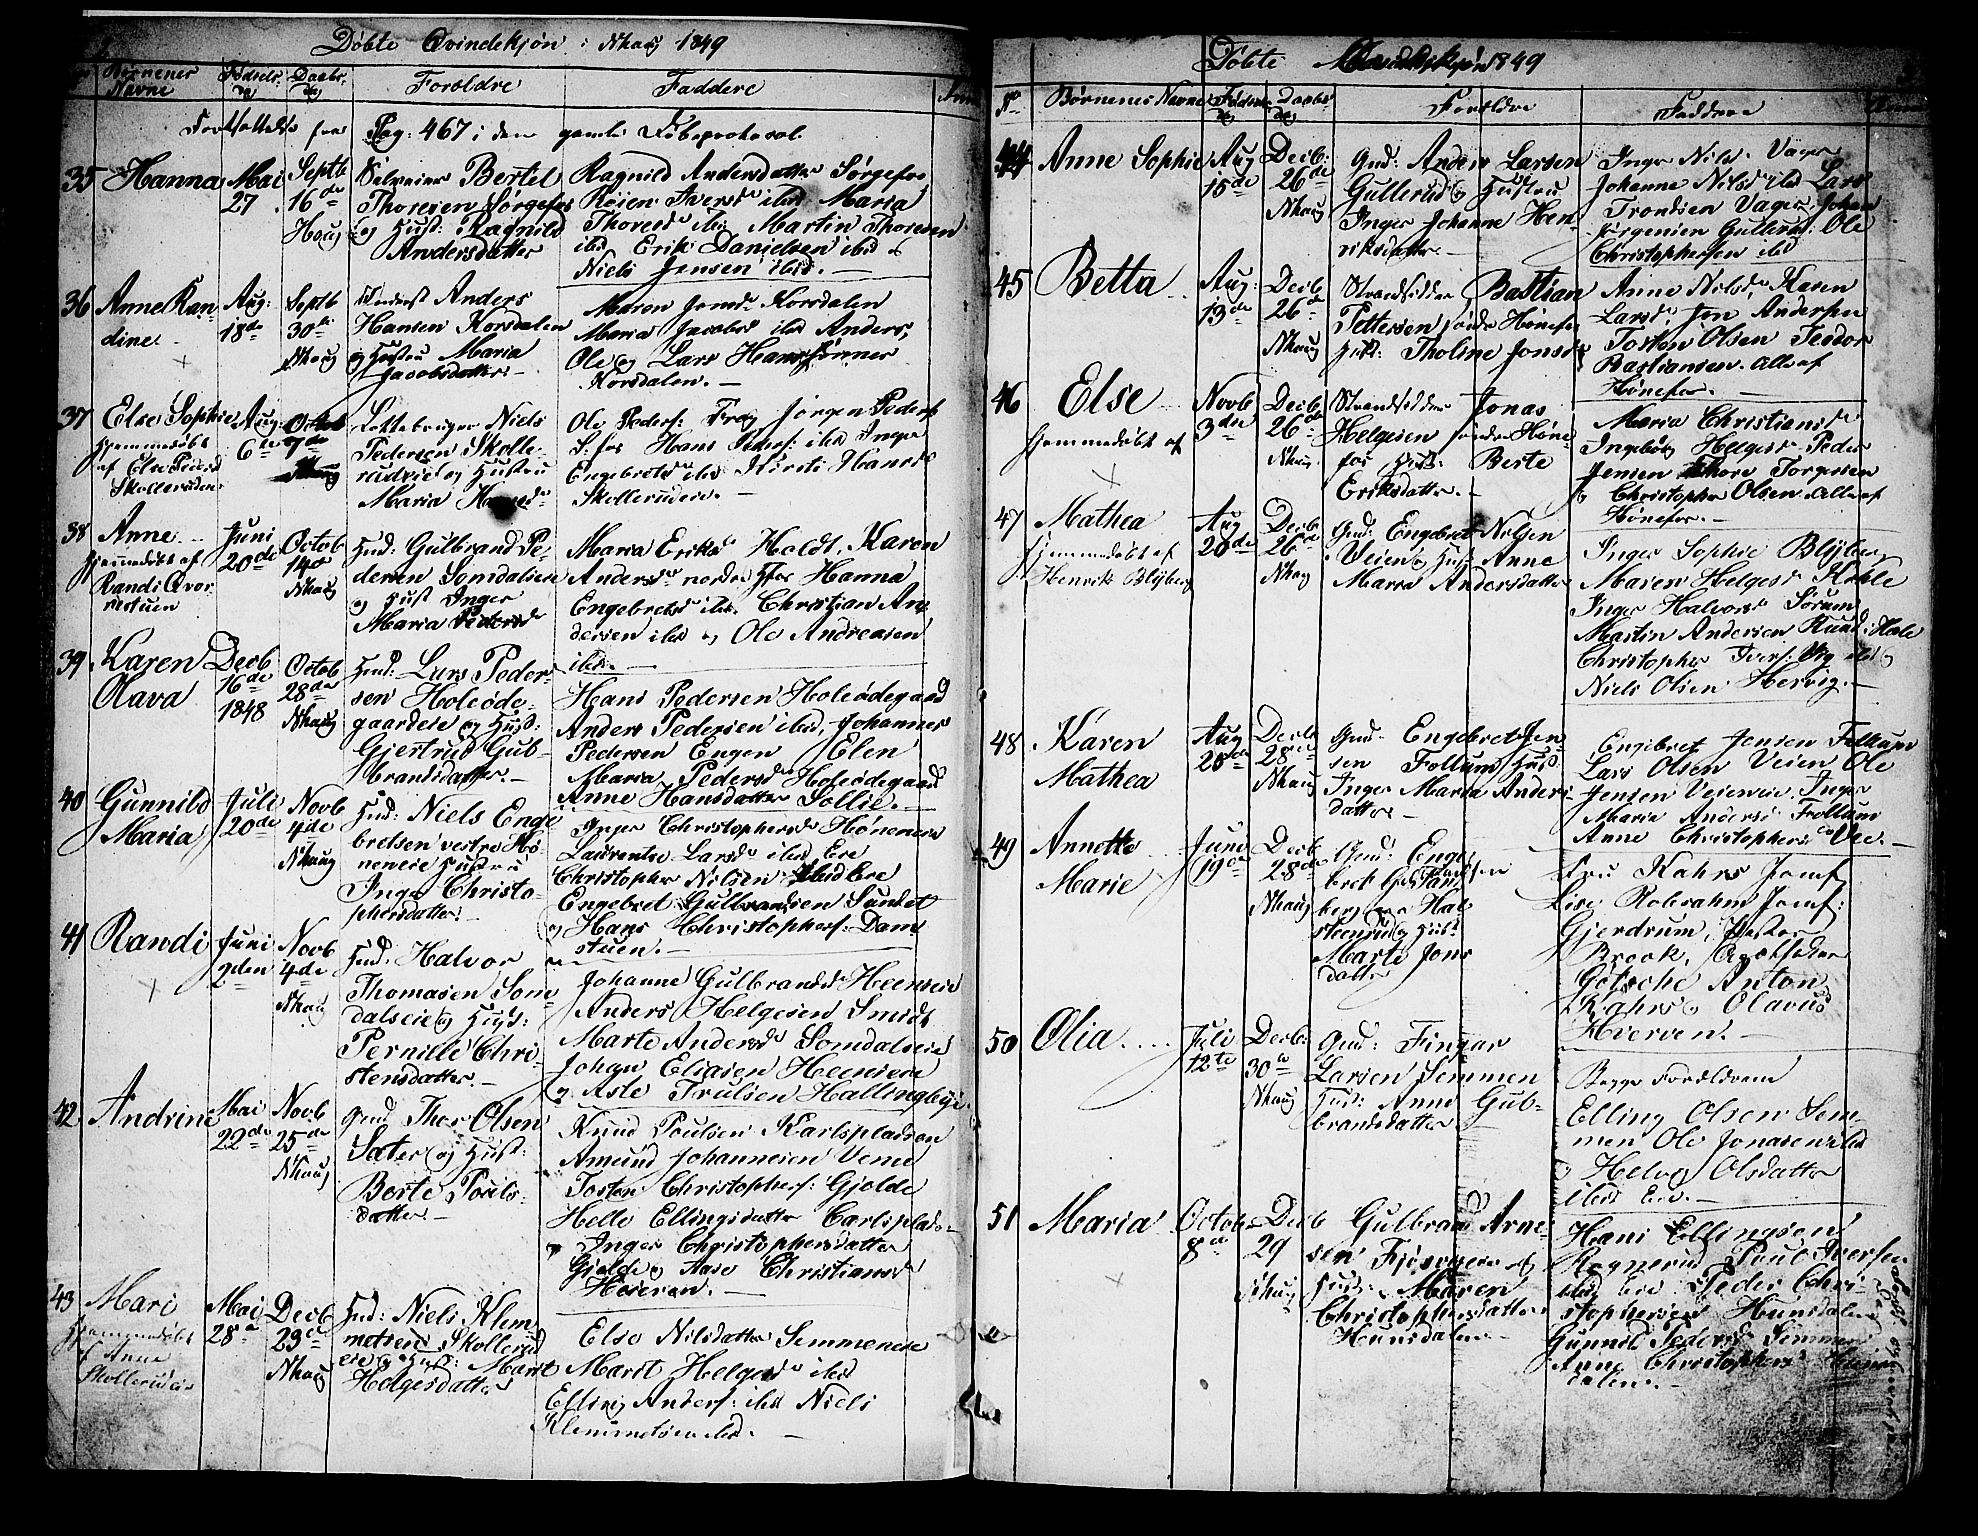 Döbte Qvindekjön i Nhaug 1849
Börnenes Navne
Födsels Dg
Daabs Dg
Forældre
Faddere
Fortsættelse fra Pag: 467 i den gamle Döbeprotocol
35 Hanna
Mai 27
Septb 16de Houg
Selveier Bertel
Thoresen Sörgefos
og Hust: Ragnild
Andersdatter
Ragnild Andersdatter Sörgefos
Röien Iversd ibid Maria
Thoresd ibid Martin Thoresen
ibid Erik Danielsen ibid
Niels Jensen ibid.
36 Anne Kandine
Aug: 18de
Septb 30te Nhaug
Anders
Hansen Korsdalen
og Hustru Maria
Jacobsdatter
Maren Jensd Korsdalen
Maria Jacobsd ibid Anders,
Ole og Lars Hanssönner
Korsdalen.
37 Else Sophie
hjemmedöbt
af Else Pedersd
Skollerudeie
Aug: 6te
Octob 7de Nhaug
Niels
Pedersen Skollerudeie og Hustru
Maria Hansd
Ole Peders: Jörgen Peders
Hans Peders: ibid Inger
Engebretsd ibid Kirsti Hansd
Skollerudeie.
38 Anne
hjemmedöbt af
Randi
Juni 20de
Octob 14de Nhaug
Hmd: Gulbrand Pedersen Somdalseien
og Hust Inger
Maria Pedersd
Maria Eriksd Holdt, Karen
Andersd Hanna
Engebretsd ibid. Christian Andersen ibid og Ole Andreasen
ibid.
39 Karen Olava
Decb 16de 1848
Octob 28de Nhaug
Hmd: Lars Pedersen Holeödegaardeie og Hust:
Gjertrud Gulbrandsdatter.
Hans Pedersen Holeödegaard
Anders Pedersen ibid, Johannes
Pedersen Engen Elen
Maria Pedersd Holeödegaard
Anne Hansdatter Sollie.
40 Gunnild Maria
Juli 20de
Novb 4de Nhaug
Hmd: Niels Engebretsen vestre Höneneie Hustru
Inger Christophersdatter.
Inger Christophersd Höneneie
Laurentse Larsd ibid Eie
Christopher Nilsen ibid Eie
Engebret Gulbrandsen Sundet
og Hans Christophers: Damstuen.
41 Randi
Juni 2den
Novb 4de Nhaug
Hmd. Halvor
Thomasen Somdalseie og Hust:
Pernille Christensdatter.
Johanne Gulbrandsd Heenseie
Anders Helgesen Smidt
Marte Andersd Somdalseie
Johan Eliasen Heenseie
og Asle Trulsen Hallingbyei.
42 Andrine
Mai 22de
Novb 25de Nhaug
Gmd Thor Olsen
Sæter og Hust:
Berte Poulsdatter.
Knud Poulsen Karlspladsen
Amund Johannesen Veme
Torsten Christophers: Gjolde
Helle Ellingsdatter Carlsplads
Inger Christophersdatter
Gjolde og Aase Christiansd
Heieren.
43 Mari
hjemmedöbt
af Anne
Skollerudeie
Mai 28de
Decb 23de Nhaug
Hmd: Niels Klemmetsen Skollerudeie og Hust: Marit
Helgesdatter
Else Nilsdatter Semmeneie
Marit Helgesd ibid
Elling Anders: ibid Niels
Klemmetsen ibid.
Döbte Qvindekjön 1849
No
Börnenes Navne
Födsels Dg
Daabs Dg
Forældre
Faddere
44 Anne Sophie
Aug 15de
Decb: 26de Nhaug
Gmd: Anders Larsen
Gullerud og Hustru
Inger Johanne Henriksdatter.
Inger Nilsd. Vager
Johanne Nilsd ibid Lars
Trondsen Vager Johan
Jörgensen Gullerud: Ole
Christophersen ibid
45 Betta
Aug: 13de
Decb 26de Nhaug
Strandsidder Bastian
Pettersen söndre Hönefos
Hust: Tholine Jonsd
Anne Nilsd, Karen
Larsd Jon Andersen
Torsten Olsen Teodor
Bastiansen. Alle af
Hönefos.
46 Else
hjemmedöbt af
Novb 3de
Decb 26de Nhaug
Strandsidder Jonas
Helgesen söndre Hönefos Hust: Berte
Eriksdatter.
Maria Christiansd
Ingeborg Helgesd Peder
Jensen Thore Torgersen
og Christopher Olsen Alle af
Hönefos.
47 Mathea
hjemmedöbt af
Henrik Blyberg
Aug 20de
Decb 26de Nhaug
Gmd: Engebret Nilsen
Veien og Hust Anne
Maria Andersdatter
Inger Sophie Blyberg
Maren Helgesd Kihle
Inger Halvorsd Sörum
Martin Andersen Rund i Hole
Christopher Ivers: Vig ibid og
Niels Olsen Hervig.
48 Karen Mathea
Aug 28de
Decb 28de Nhaug
Gmd: Engebret Jensen Follum Hust
Inger Maria Andersdatter.
Engebret Jensen Follum
Lars Olsen Veien Ole
Jensen Veseneie. Inger
Maria Andersd Follum
Anne Christophersd Vee.
49 Annette Marie
Juni 19de
Decb 28de Nhaug
Gmd: Engebret
Marte Jonsdatter
Fru Kahrs Jomf
Lise Robsahm Jomf:
Gjerdrum, Pastor
Brock, Apotheker
Götsche Anton
Kahrs og Olavus
Hierven.
50 Olia
Juli 12te
Decb: 30te Nhaug
Gmd: Fingar
Larsen Semmen
Hust: Anne Gulbrandsdatter
Begge Forældrene
Elling Olsen Semmen Ole Jonasen ibid
og Helvig Olsdatter
ibid Eie.
51 Maria
Octob 8de
Decb 29 Nhaug
Gulbrand Arnesen
Hust: Maren
Christophersdatter
Hunsdalen.
Hans Ellingsen
Rognerud Poul Iversen
ibid Eie Peder Christophersen Hunsdalen
Gunnild Pedersd Semmen
Anne Christophersd Hunsdalen.